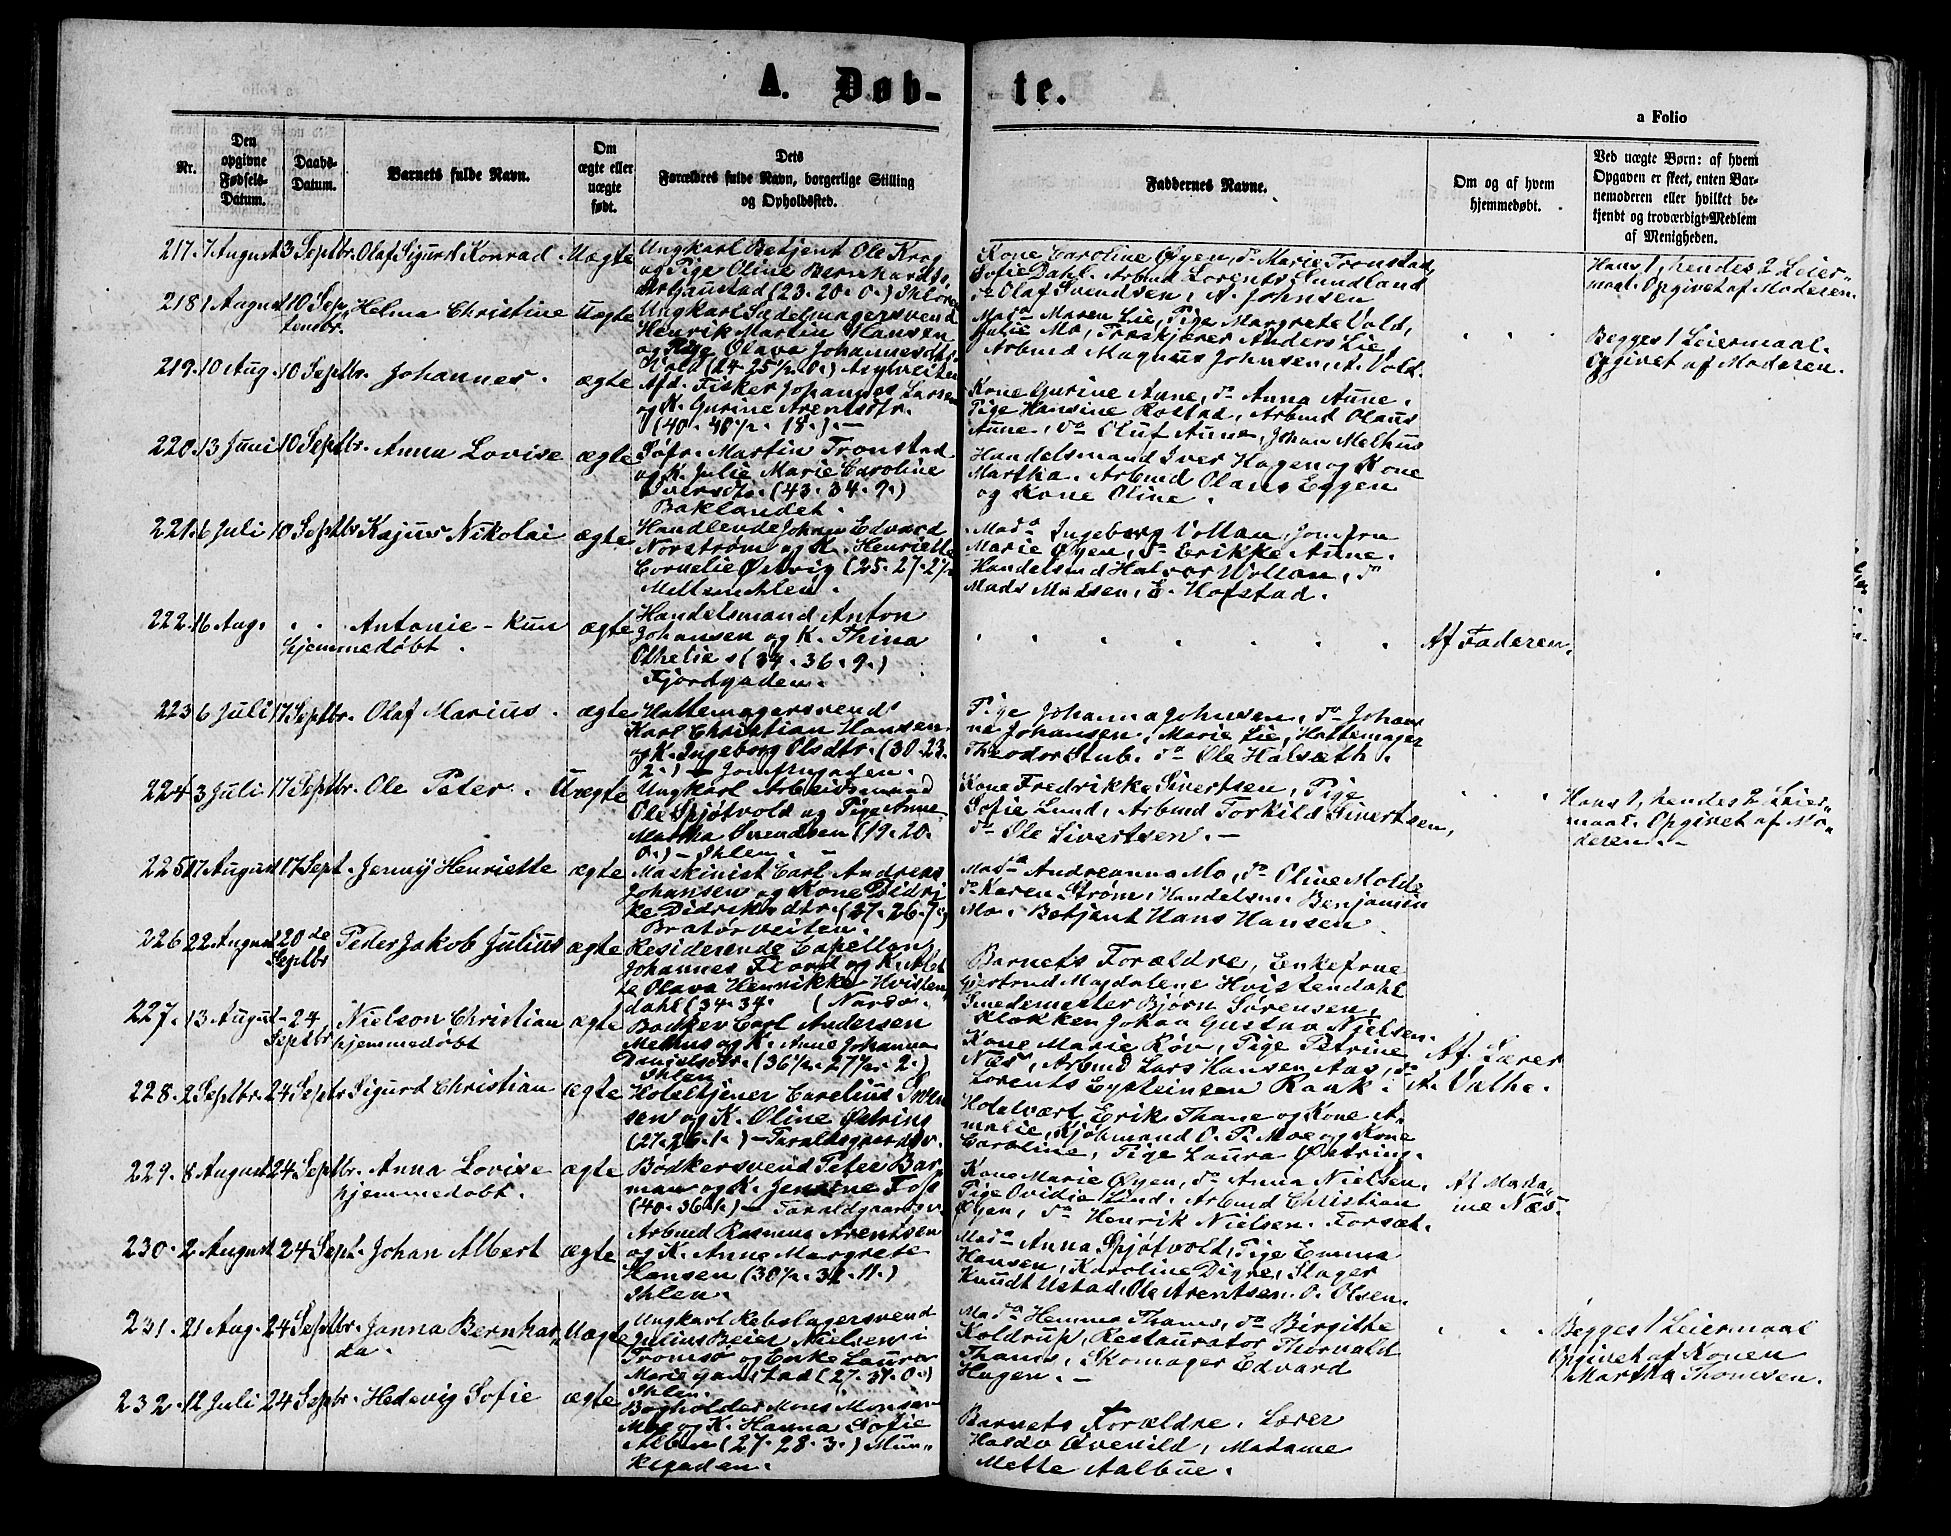 A. Døb-
te.
a Folio
Nr.
Den
opgivne
Fødsels-
Datum.
Daabs-
Datum.
Barnets fulde Navn.
Om
ægte eller
uægte
født.
Dets
Forældres fulde Navn, borgerlige Stilling
og Opholdssted.
Faddernes Navne.
Om og af hvem
hjemmedøbt.
Ved uægte Børn: af hvem
Opgaven er skeet, enten Bar-
nemoderen eller hvilket be-
kjendt og troværdigt Medlem
af Menigheden.
217. 7 August 3 Septbr. Olaf Sigurd Konrad. Uægte
Ungkarl Betjent Ole Krog
og Pige Oline Bernhardts.
Gaustad (23. 20. 0.) Ihlen
Kone Caroline Øyen, do Marie Tronstad,
Sofie Dahl. Arbmd Lorents Sundland
do Olaf Svendsen, A. Johnsen
Hans 1, hendes 2 Leier-
maal. Opgivet af Moderen.
218 1 August 10 Sep-
tembr. Helma Christine Uægte
Ungkarl Sadelmagersvend
Henrik Martin Hansen
og Pige Olava Johannesdtr.
Hald (24. 25½. 0.) Asylveiten
Mada Maren Lie, Pige Margrete Vold,
Julie Mo, Træskjærer Anders Lie
Arbmd Magnus Johnsen, A. Vold.
Begges 1 Leiermaal.
Opgivet af Moderen.
219. 10 Aug. 10 Septbr. Johannes. ægte
Afd. Fisker Johannes Larsen
og K. Gurine Arentsdtr.
(40. 40½. 18.) –
Kone Gurine Aune, do Anna Aune.
Pige Hansine Rostad, Arbmd Olaus
Aune, do Oluf Aune, Johan Melhus
220. 13 Juni 10 Septbr. Anna Lovise ægte
Søfr. Martin Tronstad
og K. Julie Marie Caroline
Iversdtr. (43. 34. 9.)
Baklandet.
Handelsmand Iver Hagen og Kone
Martha. Arbmd Olaus Eggen
og Kone Oline.
221. 6 Juli 10 Septbr Kajus Nikolai ægte
Handlende Johan Edvard
Norstrøm og K. Henriette
Cornelie Østvig (25. 27. 2½
Mellemihlen.
Mada Ingeborg Vollan, Jomfru
Marie Øyen, do Erikke Aune.
Handelsmd Halvor Wollan, do
Mads Madsen, E. Hofstad.
222. 16 Aug. Antonie – kun
hjemmedøbt. ægte
Handelsmand Anton
Johansen og K. Thina
Othelie (34. 36. 9.)
Fjordgaden.
Af Faderen.
223 6 Juli 17 Septbr. Olaf Marius. ægte
Hattemagersvend
Karl Christian Hansen
og K. Ingeborg Olsdtr. (30. 23.
2.) – Jomfrugaden.
Pige Johanna Johnsen, do Johan-
na Johansen, Marie Lie, Hattemager
Theodor Stub. do Ole Halsæth.
224 3 Juli 17 Septbr. Ole Peter. Uægte
Ungkarl Arbeidsmand
Ole Spjøtvold og Pige Anne
Martha Svendsen (19. 20.
0.) – Ihlen. –
Kone Fredrikke Sivertsen, Pige
Sofie Lund, Arbmd Torkild Sivertsen,
do Ole Sivertsen. –
Hans 1, hendes 2 Leier-
maal. Opgivet af Mo-
deren. –
225 17 August 17 Sept. Jenny Henriette ægte
Maskinist Carl Andreas
Johansen og Kone Didri-
ke Didriksdtr. (27. 26. 7.)
Bratørveiten.
Mada Andreanna Mo, do Oline Molde
do Karen Strøm, Handelsm. Benjamin
Mo. Betjent Hans Hansen
226 22 August 20de
Septbr Peder Jakob Julius ægte
Residerende Capellan
Johannes Flood og K. Alet-
te Olava Henrikke Hvisten-
dahl (34. 34. (Nardo.
Barnets Forældre, Enkefrue
Gjertrud Magdalene Hvistendahl
Smedemester Bjørn Sørensen,
Klokken Johan Gustav Nielsen.
227. 13 August 24
Septbr Nielson Christian
hjemmedøbt ægte
Bødker Carl Andersen
Melhus og K. Anne Johanna
Danielsdtr. (36½. 27½. 2.)
Ihlen
Kone Marie Røv, Pige Petrine
Næs, Arbmd Lars Hansen Aas, do
Lorents Eysteinsen Raak i A.
Af Lærer
Valhe.
228. 2 Septbr. 24 Septbr Sigurd Christian ægte
Hoteltjener Carelius Svend-
sen og K. Oline Østring
(27. 26. 1.) – Taraldsgaardsv.
Hotelvært Erik Thane og Kone A-
malie, Kjøbmand O. P. Moe og Kone
Caroline, Pige Laura Østring.
229. 8 August 24 Septbr. Anna Lovise
hjemmedøbt. ægte
Bødkersvend Peter Bar-
man og K. Jensine Foss
(40. 36. 1.) – Taraldgaardsv.
Kone Marie Øyen, do Anna Nielsen.
Pige Ovidia Lind. Arbmd Christian
Øyen, do Henrik Nielsen. Forsæt.
Af Mada-
me Næs.
230. 2 August 24 Sept. Johan Albert ægte
Arbmd Rasmus Arentsen
og K. Anne Margrete
Hansen (30½. 32. 11.)
Ihlen.
Mada Anna Spjøtvold, Pige Emma
Hansen, Karoline Digre, Slager
Knudt Ustad, Ole Arentsen. O. Olsen.
231. 21 Aug. 24 Septbr. Janna Bernhar-
da. Uægte
Ungkarl Rebslagersvend
Julius Beier Nielsen i
Tromsø og Enke Laura
Marie Gaustad (27. 31. 0.)
Ihlen.
Mada Hemma Thams, do Birgitte
Koldrup, Restaurator Thorvald
Thams, Skomager Edvard
Hagen. –
Begges 1 Leiermaal
Opgivet af Konen
Martha Thomsen.
232. 12 Juli 24 Septbr. Hedevig Sofie ægte
Bogholder Mons Monsen
Moe og K. Hanna Sofie
Alben (27. 28. 3.) Mun-
kegaden.
Barnets Forældre. Lærer
Haldo Øvevild, Madame
Mette Aalbue.